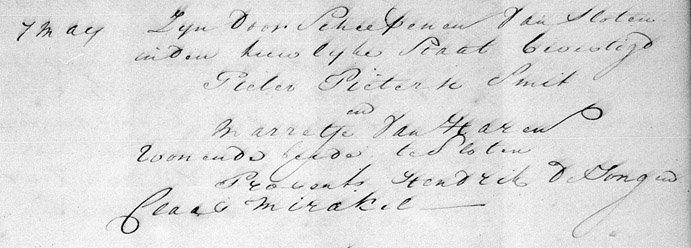 7 May Zyn Door Scheepenen Van Sloten
inden huwlyke Staat bevestigd
Pieter Pieterse Smit
en
Marretje Van Haren
Woonende beide te Sloten
Presents Hendrik De Jong en
Claas Mirakel